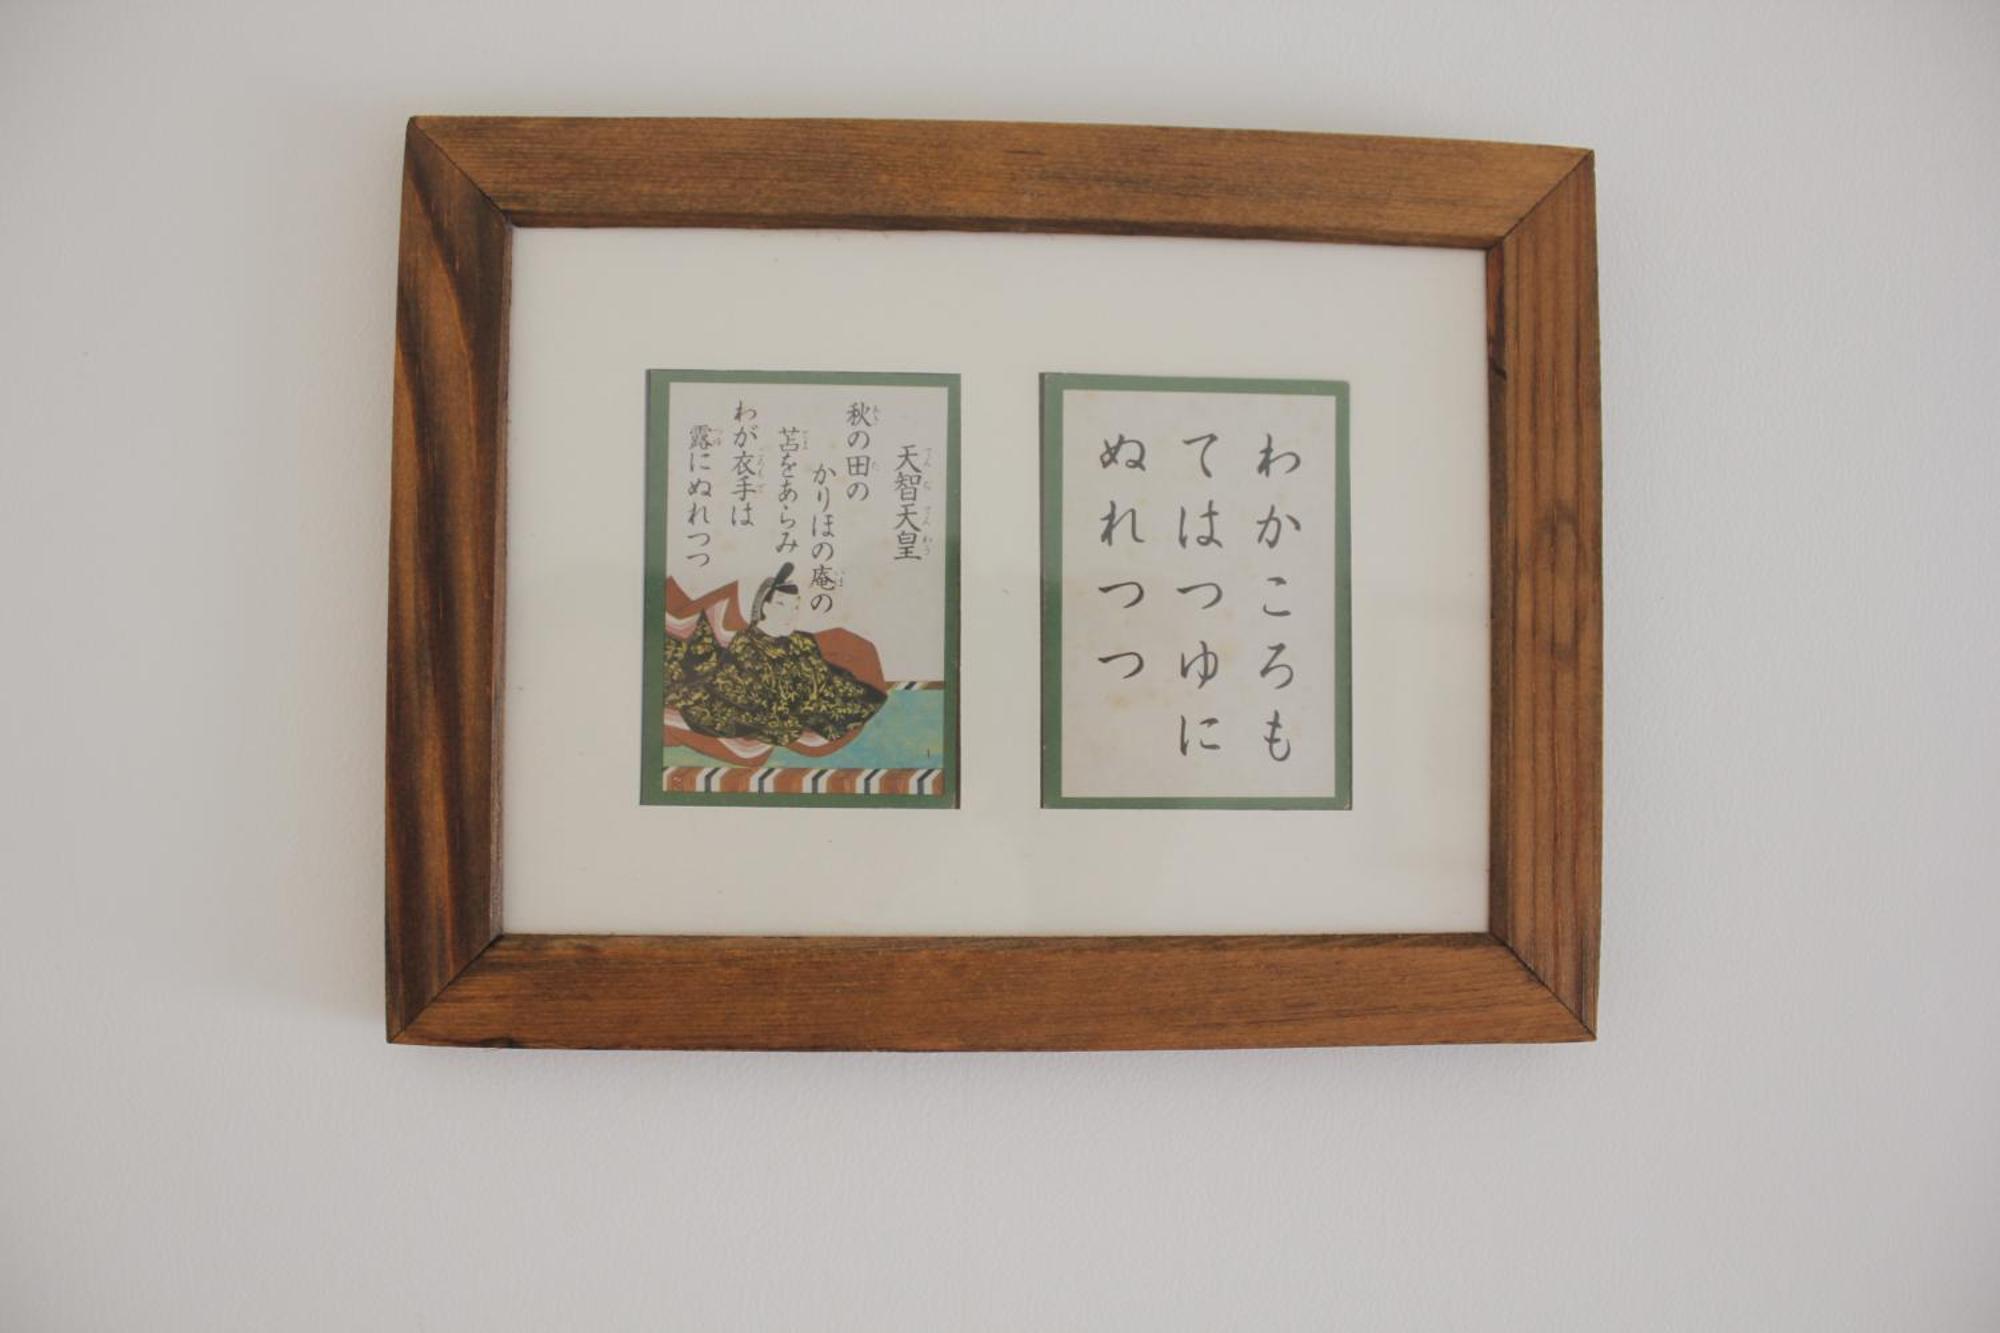 天智天皇
秋の田の
かりほの庵の
苫をあらみ
わが衣手は
露にぬれつつ
1
わかころも
てはつゆに
ぬれつつ